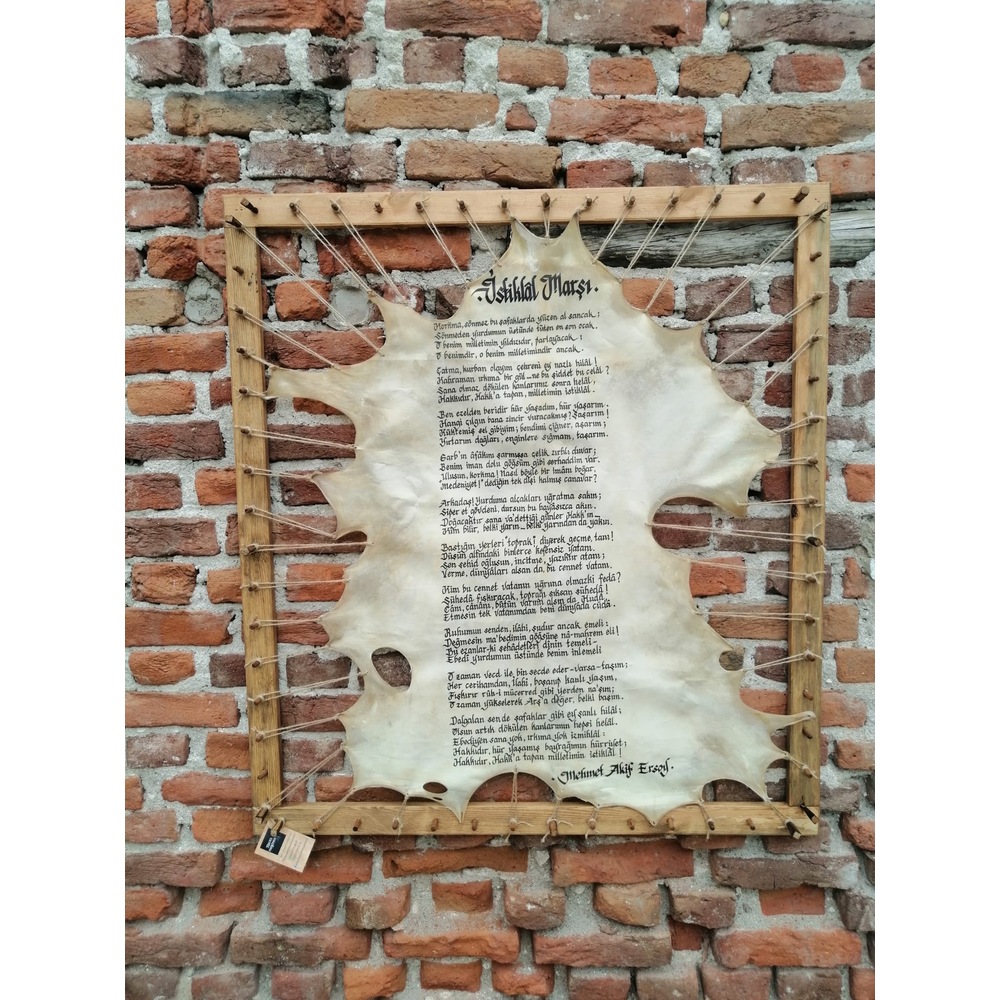 İstiklâl Marşı.
Korkma, sönmez bu şafaklarda yüzen al sancak;
Sönmeden yurdumun üstünde tüten en son ocak.
O benim milletimin yıldızıdır, parlayacak;
O benimdir, o benim milletimindir ancak.
Çatma, kurban olayım çehreni ey nazlı hilâl!
Kahraman ırkıma bir gül... ne bu şiddet bu celâl?
Sana olmaz dökülen kanlarımız sonra helâl,
Hakkıdır, Hakk'a tapan, milletimin istiklâl.
Ben ezelden beridir hür yaşadım, hür yaşarım.
Hangi çılgın bana zincir vuracakmış? Şaşarım!
Kükremiş sel gibiyim; bendimi çiğner, aşarım;
Yırtarım dağları, enginlere sığmam, taşarım.
Garb'ın âfâkını sarmışsa çelik zırhlı duvar;
Benim iman dolu göğsüm gibi serhaddim var.
Ulusun, korkma! Nasıl böyle bir îmânı boğar,
Medeniyet! dediğin tek dişi kalmış canavar?
Arkadaş! Yurduma alçakları uğratma sakın;
Siper et gövdeni, dursun bu hayâsızca akın.
Doğacaktır sana va'dettiği günler Hakk'ın...
Kim bilir, belki yarın... belki yarından da yakın.
Bastığın yerleri "toprak" diyerek geçme, tanı!
Düşün altındaki binlerce kefensiz yatanı.
Sen şehid oğlusun, incitme, yazıktır atanı;
Verme, dünyâları alsan da, bu cennet vatanı.
Kim bu cennet vatanın uğruna olmazki fedâ?
Şühedâ fışkıracak, toprağı sıksan şühedâ!
Cânı, cânânı, bütün varımı alsın da Hudâ,
Etmesin tek vatanımdan beni dünyâda cüdâ.
Ruhumun senden, ilâhi, şudur ancak emeli:
Değmesin ma'bedimin göğsüne nâ-mahrem eli!
Bu ezanlar-ki şehâdetleri dînin temeli-
Ebedi yurdumun üstünde benim inlemeli
O zaman vecd ile bin secde eder-varsa-taşım;
Her cerihamdan, İlahi, boşanıp kanlı yaşım,
Fışkırır rûh-i mücerred gibi yerden na'şım;
O zaman yükselerek Arş'a değer, belki başım.
Dalgalan sen de şafaklar gibi ey şanlı hilâl;
Olsun artık dökülen kanlarımın hepsi helâl.
Ebediyen sana yok, ırkıma yok izmihlâl:
Hakkıdır, hür yaşamış bayrağımın hürriyet;
Hakkıdır, Hakk'a tapan milletimin istiklâl!
. Mehmet Akif Ersoy.